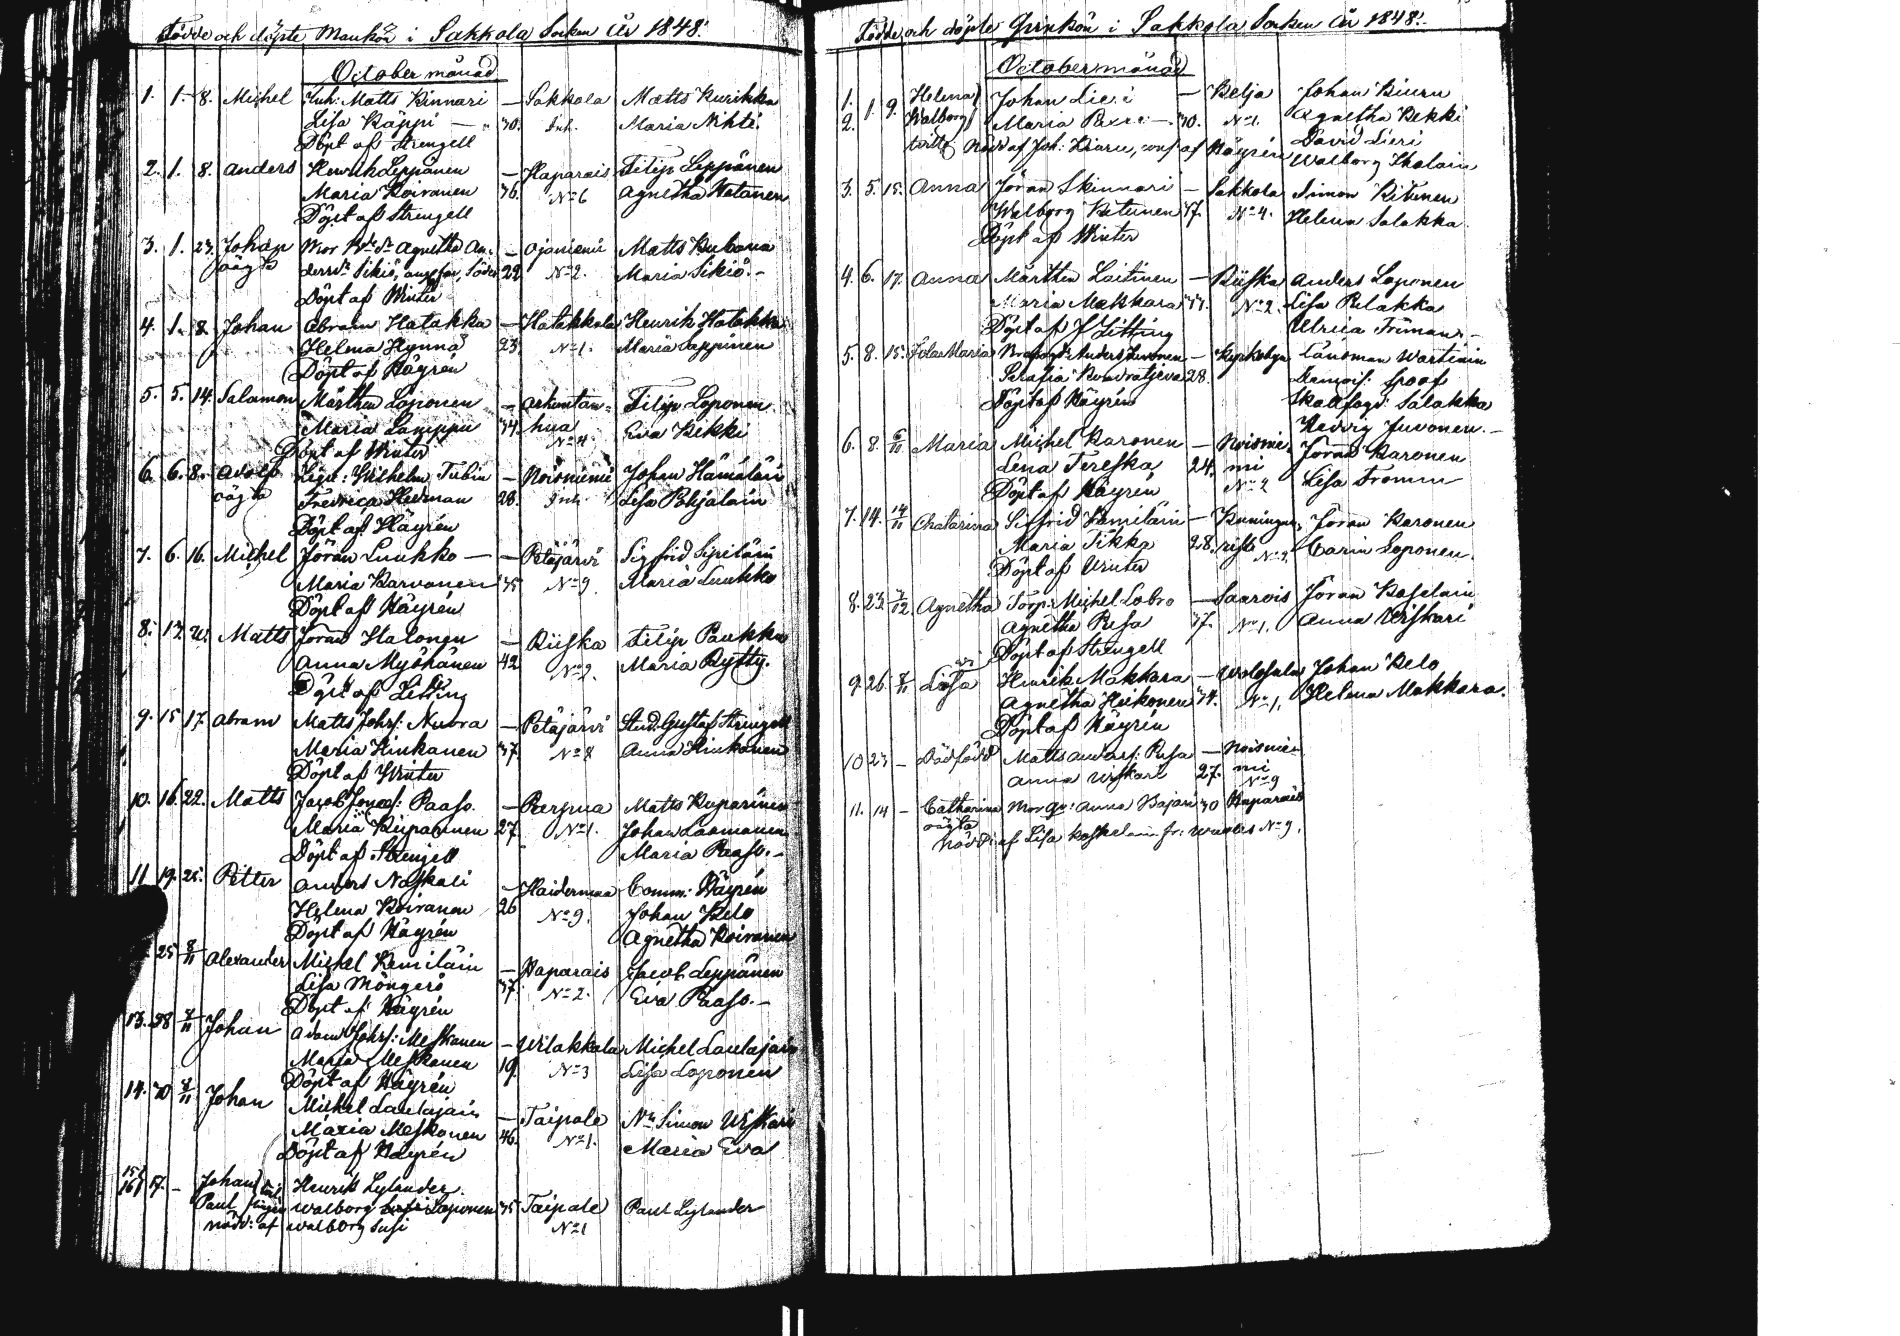 Födde och döpte Mankön i Sakkola Socken År 1848.
October månad
1. 1. 8. Michel Inh: Matts Kinnari — Sakkola Matts Kurikka
Lisa Käppi — 30. Inh. Maria Nihti.
Döpt af Strengell
2. 1. 8. Anders Henrik Leppänen — Haparais Filip Leppänen
Maria Koivonen 36. No 6 Agnetha Hatanen
Döpt af Strengell
3. 1. 23. Johan Mor Agnetha An- — Ojaniemi Matts Kubana
oägta dersdr Sikiö, 22. No 2. Maria Sikiö.-
Döpt af Winter
4. 1. 8. Johan Abram Hatakka — Hatakkala Henrik Hatakka
Helena Hynnä 23. No 1. Maria Lappinen
Döpt af Häyrén
5. 5. 14. Salamon Mårthen Loponen — Arkuntan- Filip Loponen
Maria Lamppu 34. hua Eva Kekki
No 4.
Döpt af Winter
6. 6. 8. Adolf Wilhelm Tubin — Noisniemi Johan Hämäläin
oägta Fredrica Herman 28. Inh. Lisa Pohjalain
Döpt af Häyrén
7. 6. 16. Michel Jöran Luukko — Petäjärvi Sigfrid Sipiläin
Maria Karvonen 35 No 9. Maria Luukko
Döpt af Häyrén
8. 13. Matts Jöran Halonen — Riiska Filip Paukku
Anna Myöhänen 42. No 2. Maria Rytty.
Döpt af Zitting
9. 15. 17. Abram Matts Johss: Nubra — Petäjärvi Stud. Gustaf Strengell
Maria Hinkanen 37. No 8 Anna Hinkanen
Döpt af Winter
10. 16. 22. Matts Jacob Josefs: Paaso. — Matts Kuparinen
Maria Kuparinen 27. No 1. Johan Laamanen
Döpt af Strengell Maria Paaso.-
11. 19. 25. Petter Anders Naskali — Haidermaa Comm: Häyrén
Helena Koivonen 26 No 9. Johan Kelo
Döpt af Häyrén Agnetha Koivonen
25. 8/11 Alexander Michel Kemiläin — Haparais Jacob Leppänen
Lisa Möngerö 37. No 2. Eva Paaso.-
Döpt af Häyrén
13. 28 8/11 Johan Adam Johss: Meskanen — Wilakkala Michel Laulajain
Maria Meskanen 19. No 3 Lisa Loponen
Döpt af Häyrén
14. 30 8/11 Johan Michel Laulajain — Taipale Simon Wiskari
Maria Meskonen 46. No 1. Maria Eva
Döpt af Häyrén
15. 16. 17. — Johan Henrik Lylander.
Paul Walborg Loponen 35 Taipale Paul Lylander
nödd: af Walborg Susi No 1
Födde och döpte Qvinkön i Sakkola Socken År 1848.
October månad
1. 1. 9. Helena Johan — Kelja Johan Kiuru
2. Walborg Maria 30. No 1. Agnetha Kekki
nödd af Joh: Kiuru, af Häyrén David Lieri
Walborg Skalain
3. 5. 15. Anna Jöran Skinnari — Sakkola Simon Kitunen
Walborg Kitunen 37. No 4. Helena Salakka
Döpt af Winter
4. 6. 17. Anna Mårthen Laitinen — Riiska Anders Loponen
Maria Makkara No 2. Lisa Pelakka
Döpt af Zitting Ulrica Friman.-
5. 8. 15. Maria Anders Juvonen — Kyrkobyn Länsman Wartiain
Serafia Kondratjeva 28. Demois: Spoof
Döpt af Häyrén Skallfogd: Salakka
Hedvig Juvonen.-
6. 8. 6/11 Maria Michel Karonen — Noisnie- Jöran Karonen
Lena Tereska 24. mi Lisa Tromm
Döpt af Häyrén No 2
7. 14. 14/11 Chatarina Sigfrid Kemiläin — Jöran Karonen
Maria Tikka 28. No 2. Carin Loponen.
Döpt af Winter
8. 23. Agnetha Torp: Michel Lobro — Saarois Jöran Koselain
Agnetha Resa 37. No 1. Anna Wiskari
Döpt af Strengell
9. 26. 8/11 Lovisa Henrik Makkara — Johan Kelo
Agnetha Heikonen 34. No 1. Helena Makkara.
Döpt af Häyrén
10 23 — Dödfödd Matts Anderss: Resa — Noisnie-
Anna Wiskari 27. mi
No 9
11. 14 — Catharina Mor Anna Kajari 30 Haparais
oägta
nödd: af Lisa Koskelain No 9.